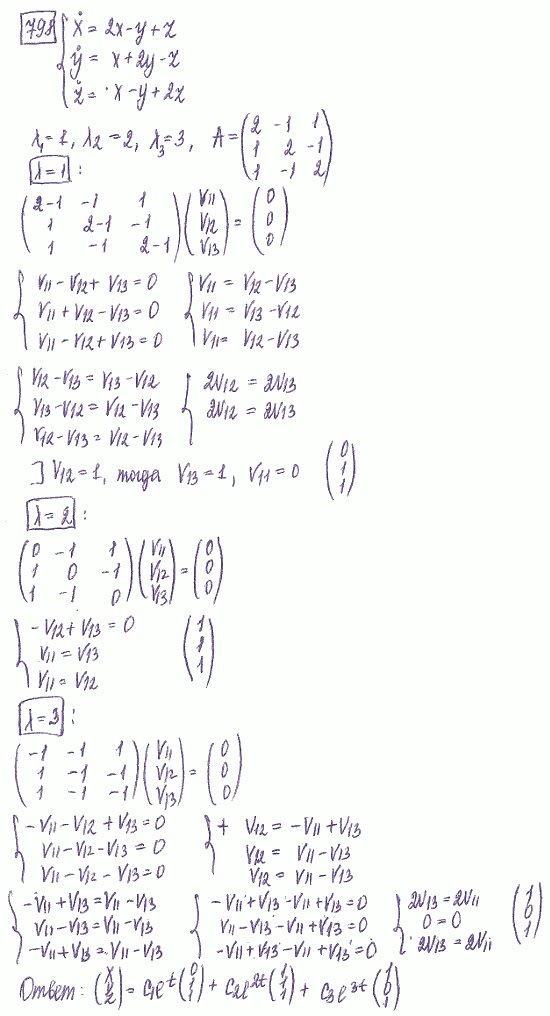 798 { ẋ = 2x-y+z
ẏ = x+2y-z
ż = x-y+2z
λ₁=1, λ₂=2, λ₃=3, A = (2 -1 1
1 2 -1
1 -1 2)
λ=1 :
(2-1 -1 1) (V11) = (0)
(1 2-1 -1) (V12) (0)
(1 -1 2-1) (V13) (0)
{ V11 - V12 + V13 = 0 { V11 = V12 - V13
V11 + V12 - V13 = 0 V11 = V13 - V12
V11 - V12 + V13 = 0 V11 = V12 - V13
{ V12 - V13 = V13 - V12 { 2V12 = 2V13
V13 - V12 = V12 - V13 2V12 = 2V13
V12 - V13 = V12 - V13
] V12 = 1, тогда V13 = 1, V11 = 0 (0
1
1)
λ=2 :
(0 -1 1) (V11) = (0)
(1 0 -1) (V12) (0)
(1 -1 0) (V13) (0)
{ -V12 + V13 = 0 (1
V11 = V13 1
V11 = V12 1)
λ=3 :
(-1 -1 1) (V11) = (0)
(1 -1 -1) (V12) (0)
(1 -1 -1) (V13) (0)
{ -V11 - V12 + V13 = 0 { + V12 = -V11 + V13
V11 - V12 - V13 = 0 V12 = V11 - V13
V11 - V12 - V13 = 0 V12 = V11 - V13
{ -V11 + V13 = V11 - V13 { -V11 + V13 - V11 + V13 = 0 { 2V13 = 2V11 (1
V11 - V13 = V11 - V13 V11 - V13 - V11 + V13 = 0 0 = 0 0
-V11 + V13 = V11 - V13 -V11 + V13 - V11 + V13 = 0 2V13 = 2V11 1)
Ответ: (x y z) = C₁e^t (0 1 1) + C₂e^2t (1 1 1) + C₃e^3t (1 0 1)